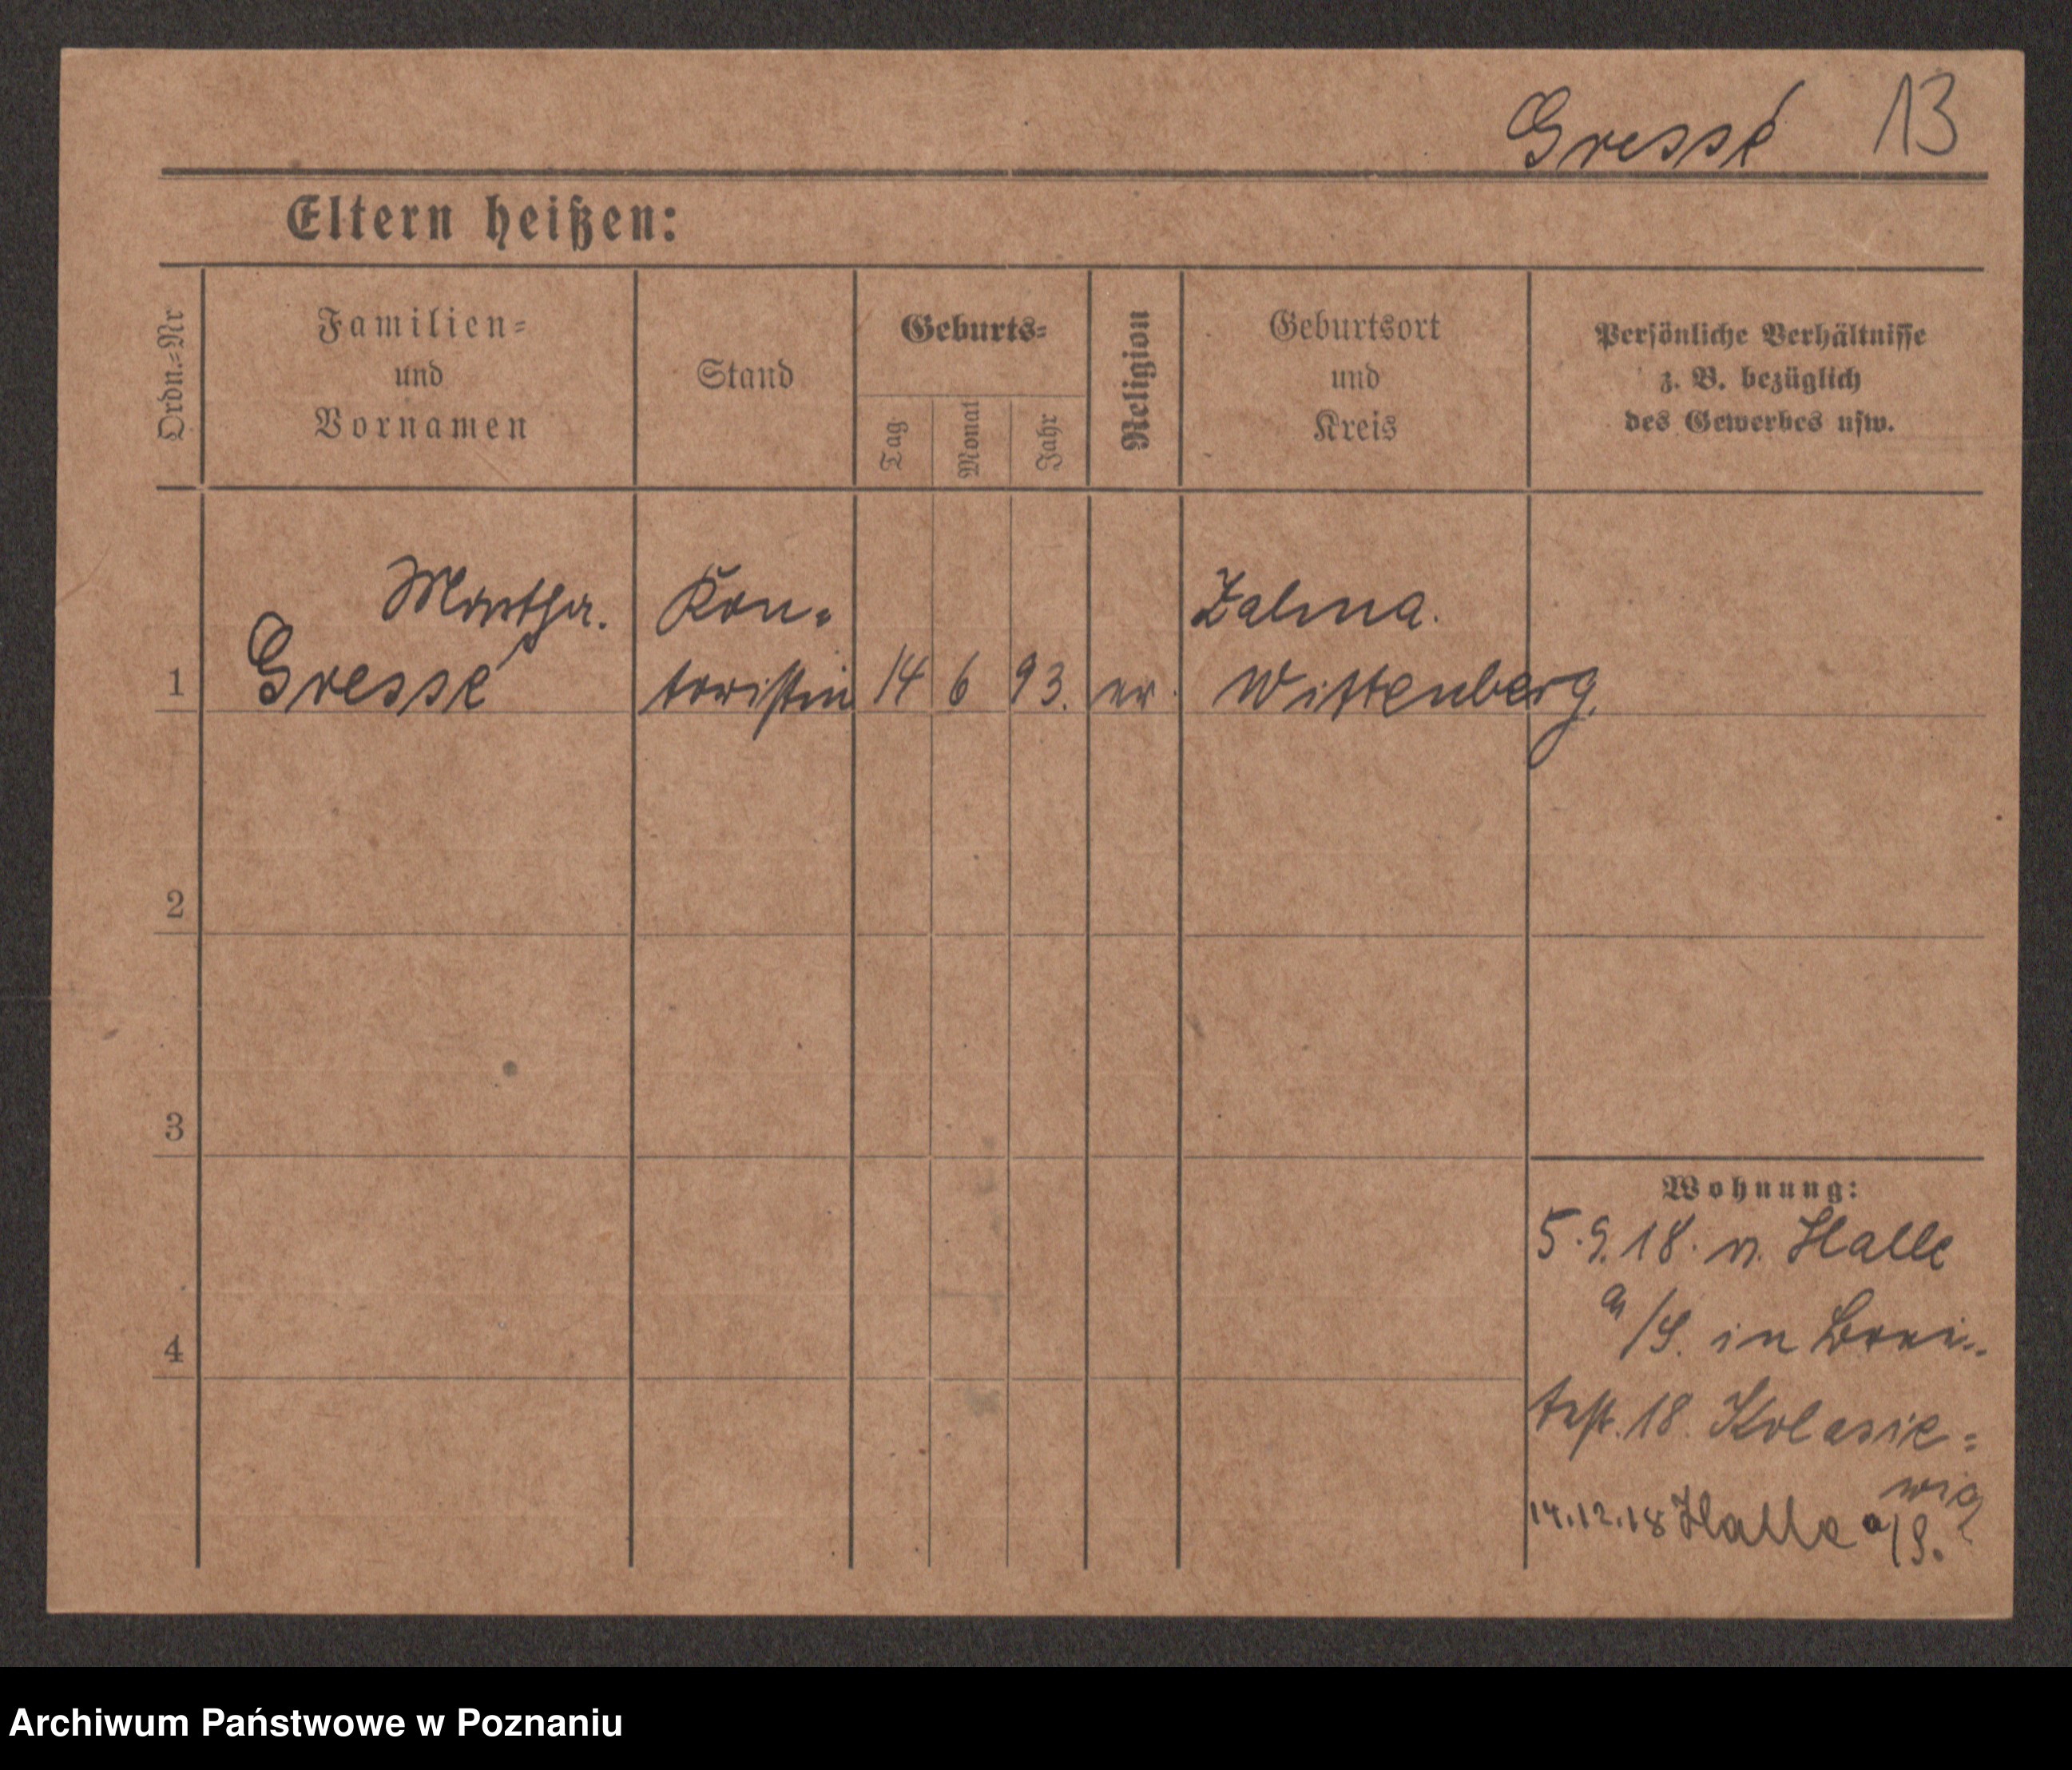 Gressé 13
Eltern heißen:
Ordn.=Nr
Familien=
und
Vornamen
Stand
Geburts=
Tag
Monat
Jahr
Religion
Geburtsort
und
Kreis
Persönliche Verhältnisse
z. B. bezüglich
des Gewerbes usw.
Martha. Kon= Zahna.
1 Gressé toristin 14 6 93. ev. Wittenberg.
2
3
4
Wohnung:
5.9.18. v. Halle
a/S. in
18. Kolasie=
wicz
14.12.18 Halle a/S.
Archiwum Państwowe w Poznaniu